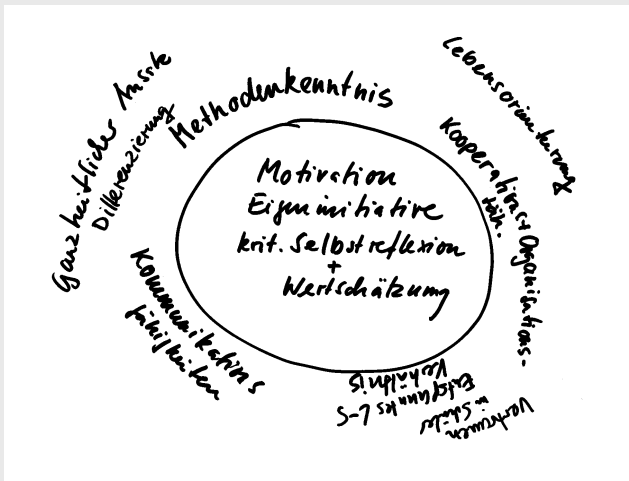 Ganzheitlicher
Differenzierung
Methodenkenntnis
Lebensorientierung
Kooperations + Organisations-
fäh.
Motivation
Eigeninitiative
krit. Selbstreflexion
+
Wertschätzung
Kommunikations
fähigkeiten
Entspanntes L-S
Verhältnis
Vertrauen
in Schüler